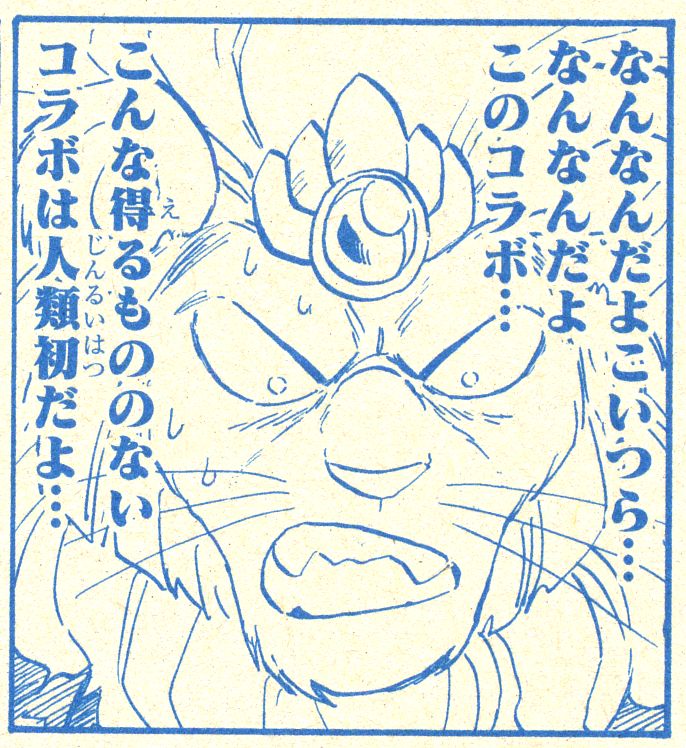 なんなんだよこいつら…
なんなんだよ
このコラボ…
こんな得るもののない
え
コラボは人類初だよ…
じんるいはつ